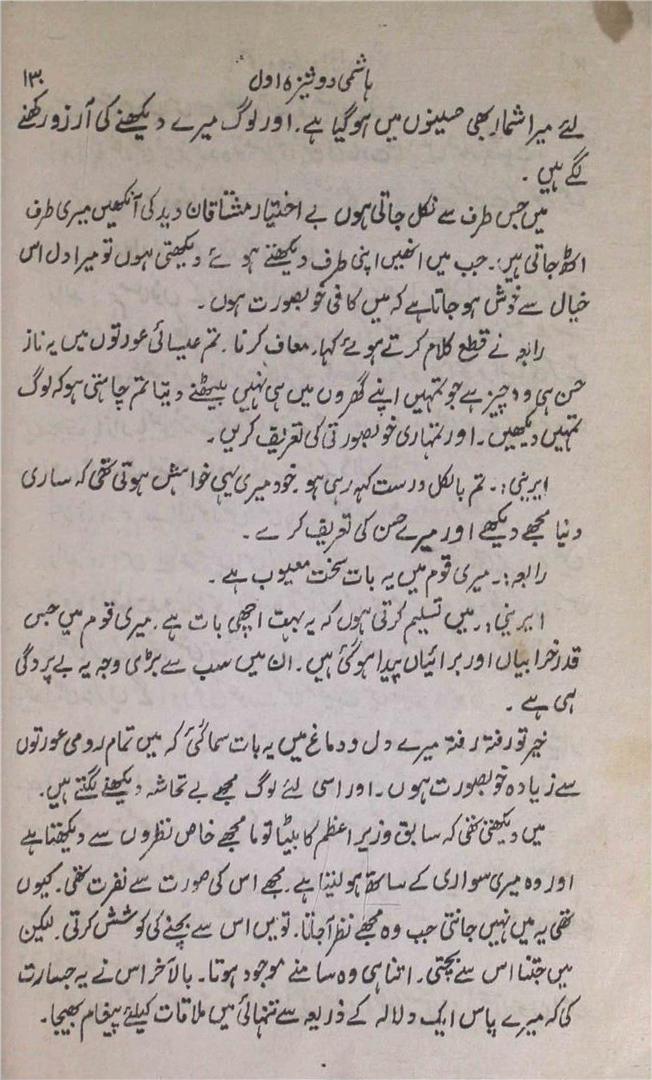 ہاشمی دوشیزہ اول ۱۳۰
لئے میرا شمار بھی حسینوں میں ہو گیا ہے۔ اور لوگ میرے دیکھنے کی آرزو رکھنے
لگے ہیں۔
میں جس طرف سے نکل جاتی ہوں بے اختیار مشتاقان دید کی آنکھیں میری طرف
اٹھ جاتی ہیں۔ جب میں انھیں اپنی طرف دیکھتے ہوئے دیکھتی ہوں تو میرا دل اس
خیال سے خوش ہو جاتا ہے کہ میں کافی خوبصورت ہوں۔
رابعہ نے قطع کلام کرتے ہوئے کہا۔ معاف کرنا۔ تم عیسائی عورتوں میں یہ ناز
حسن ہی وہ چیز ہے جو تمہیں اپنے گھروں میں ہی نہیں بیٹھنے دیتا تم چاہتی ہو کہ لوگ
تمہیں دیکھیں۔ اور تمہاری خوبصورتی کی تعریف کریں۔
ایرینی:۔ تم بالکل درست کہہ رہی ہو۔ خود میری یہی خواہش ہوتی تھی کہ ساری
دنیا مجھے دیکھے اور میرے حسن کی تعریف کرے۔
رابعہ:۔ میری قوم میں یہ بات سخت معیوب ہے۔
ایرینی:۔ میں تسلیم کرتی ہوں کہ یہ بہت اچھی بات ہے۔ میری قوم میں جس
قدر خرابیاں اور برائیاں پیدا ہو گئی ہیں۔ ان میں سب سے بڑی وجہ یہ بے پردگی
ہی ہے۔
خیر تو رفتہ رفتہ میرے دل و دماغ میں یہ بات سما گئی کہ میں تمام رومی عورتوں
سے زیادہ خوبصورت ہوں۔ اور اسی لئے لوگ مجھے بے تحاشہ دیکھنے لگتے ہیں۔
میں دیکھتی تھی کہ سابق وزیر اعظم کا بیٹا توما مجھے خاص نظروں سے دیکھتا ہے
اور وہ میری سواری کے ساتھ ہو لیتا ہے۔ مجھے اس کی صورت سے نفرت تھی۔ کیوں
تھی یہ میں نہیں جانتی جب وہ مجھے نظر آجاتا۔ تو میں اس سے بچنے کی کوشش کرتی۔ لیکن
میں جتنا اس سے بچتی۔ اتنا ہی وہ سامنے موجود ہوتا۔ بالآخر اس نے یہ جسارت
کی کہ میرے پاس ایک دلالہ کے ذریعہ سے تنہائی میں ملاقات کیلئے پیغام بھیجا۔